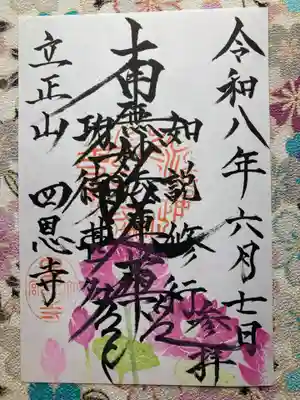 令和八年六月七日
参拝
如説修行
南無妙法蓮華経
功徳甚多
立正山
四恩寺